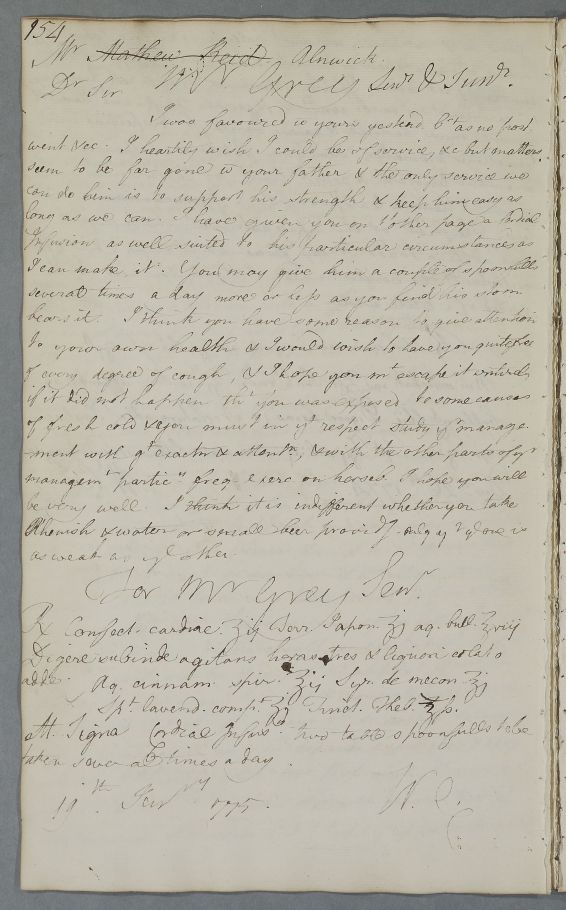 154
Mr Mathew Reid Alnwick.
Dr Sir Mr Grey Senr & Junr.
I was favoured w yours yesterd. bt as no post
went &c. I heartily wish I could be of service, &c but matters
seem to be far gone w your father & the only service we
can do him is to support his strength & keep him easy as
long as we can. I have given you on t'other page a Cordial
Infusion as well suited to his particular circumstances as
I can make it. You may give him a couple of spoonfulls
several times a day more or less as you find his stom
bears it. I think you have some reason to give attention
to your own health & I would wish to have you quite free
of every degree of cough, & I hope you mt escape it entirely
if it did not happen tht you was exposed to some causes
of fresh cold & you must in yt respect study yr manage
-ment with gt exactn & attentn, & with the other parts of yr
managemt particly freqt exerc on horseb. I hope you will
be very well. I think it is indifferent whether you take
Rhenish & water or small beer provid only yt ye one is
as weak as ye other
For Mr Grey Senr.
Rx Confect. cardiac. ʒij Terr. Japon. ʒj aq. bull. ℥viij
Digere subinde agitans horas tres & liquori colato
adde. Aq. cinnam. spir. ℥ij Syr. de mecon. ℥j
Spt. lavend. comp. ʒij Tinct. Theb. ʒſs.
M. Signa Cordial Infusn two table spoonfulls to be
taken several times a day.
19th Jenry 1775. W. C.